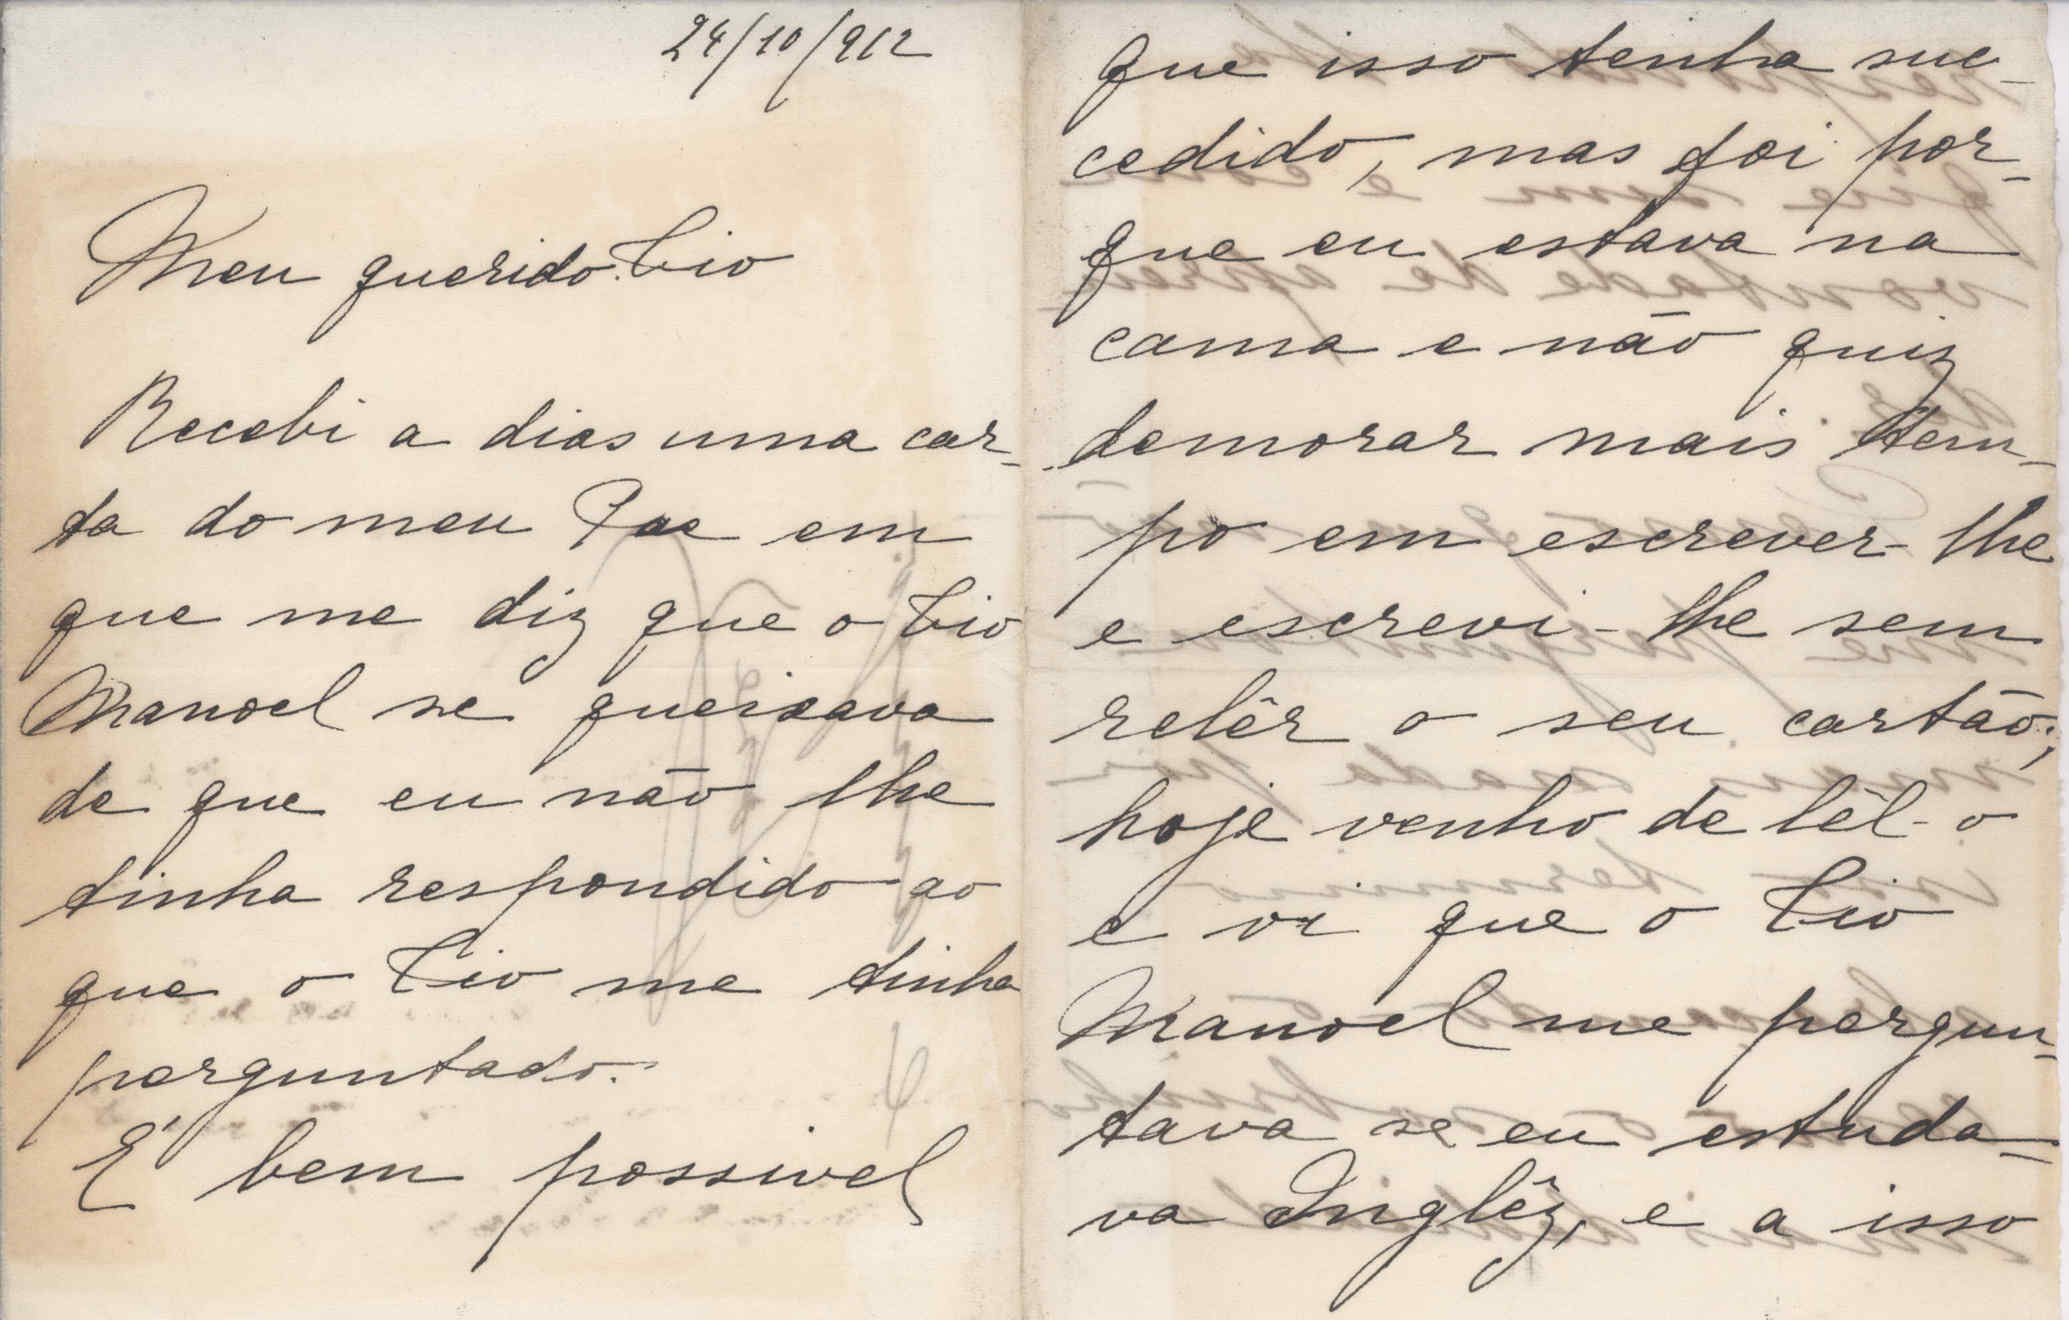 24/10/912
Meu querido Tio
Recebi a dias uma car-
ta do meu Pae em
que me diz que o Tio
Manoel se queixava
de que eu não lhe
tinha respondido ao
que o Tio me tinha
perguntado.
E' bem possivel
que isso tenha suc-
cedido, mas foi por-
que eu estava na
cama e não quiz
demorar mais tem-
po em escrever-lhe
e escrevi-lhe sem
relêr o seu cartão;
hoje venho de lêl-o
e vi que o Tio
Manoel me pergun-
tava se eu estuda-
va Inglêz, e a isso